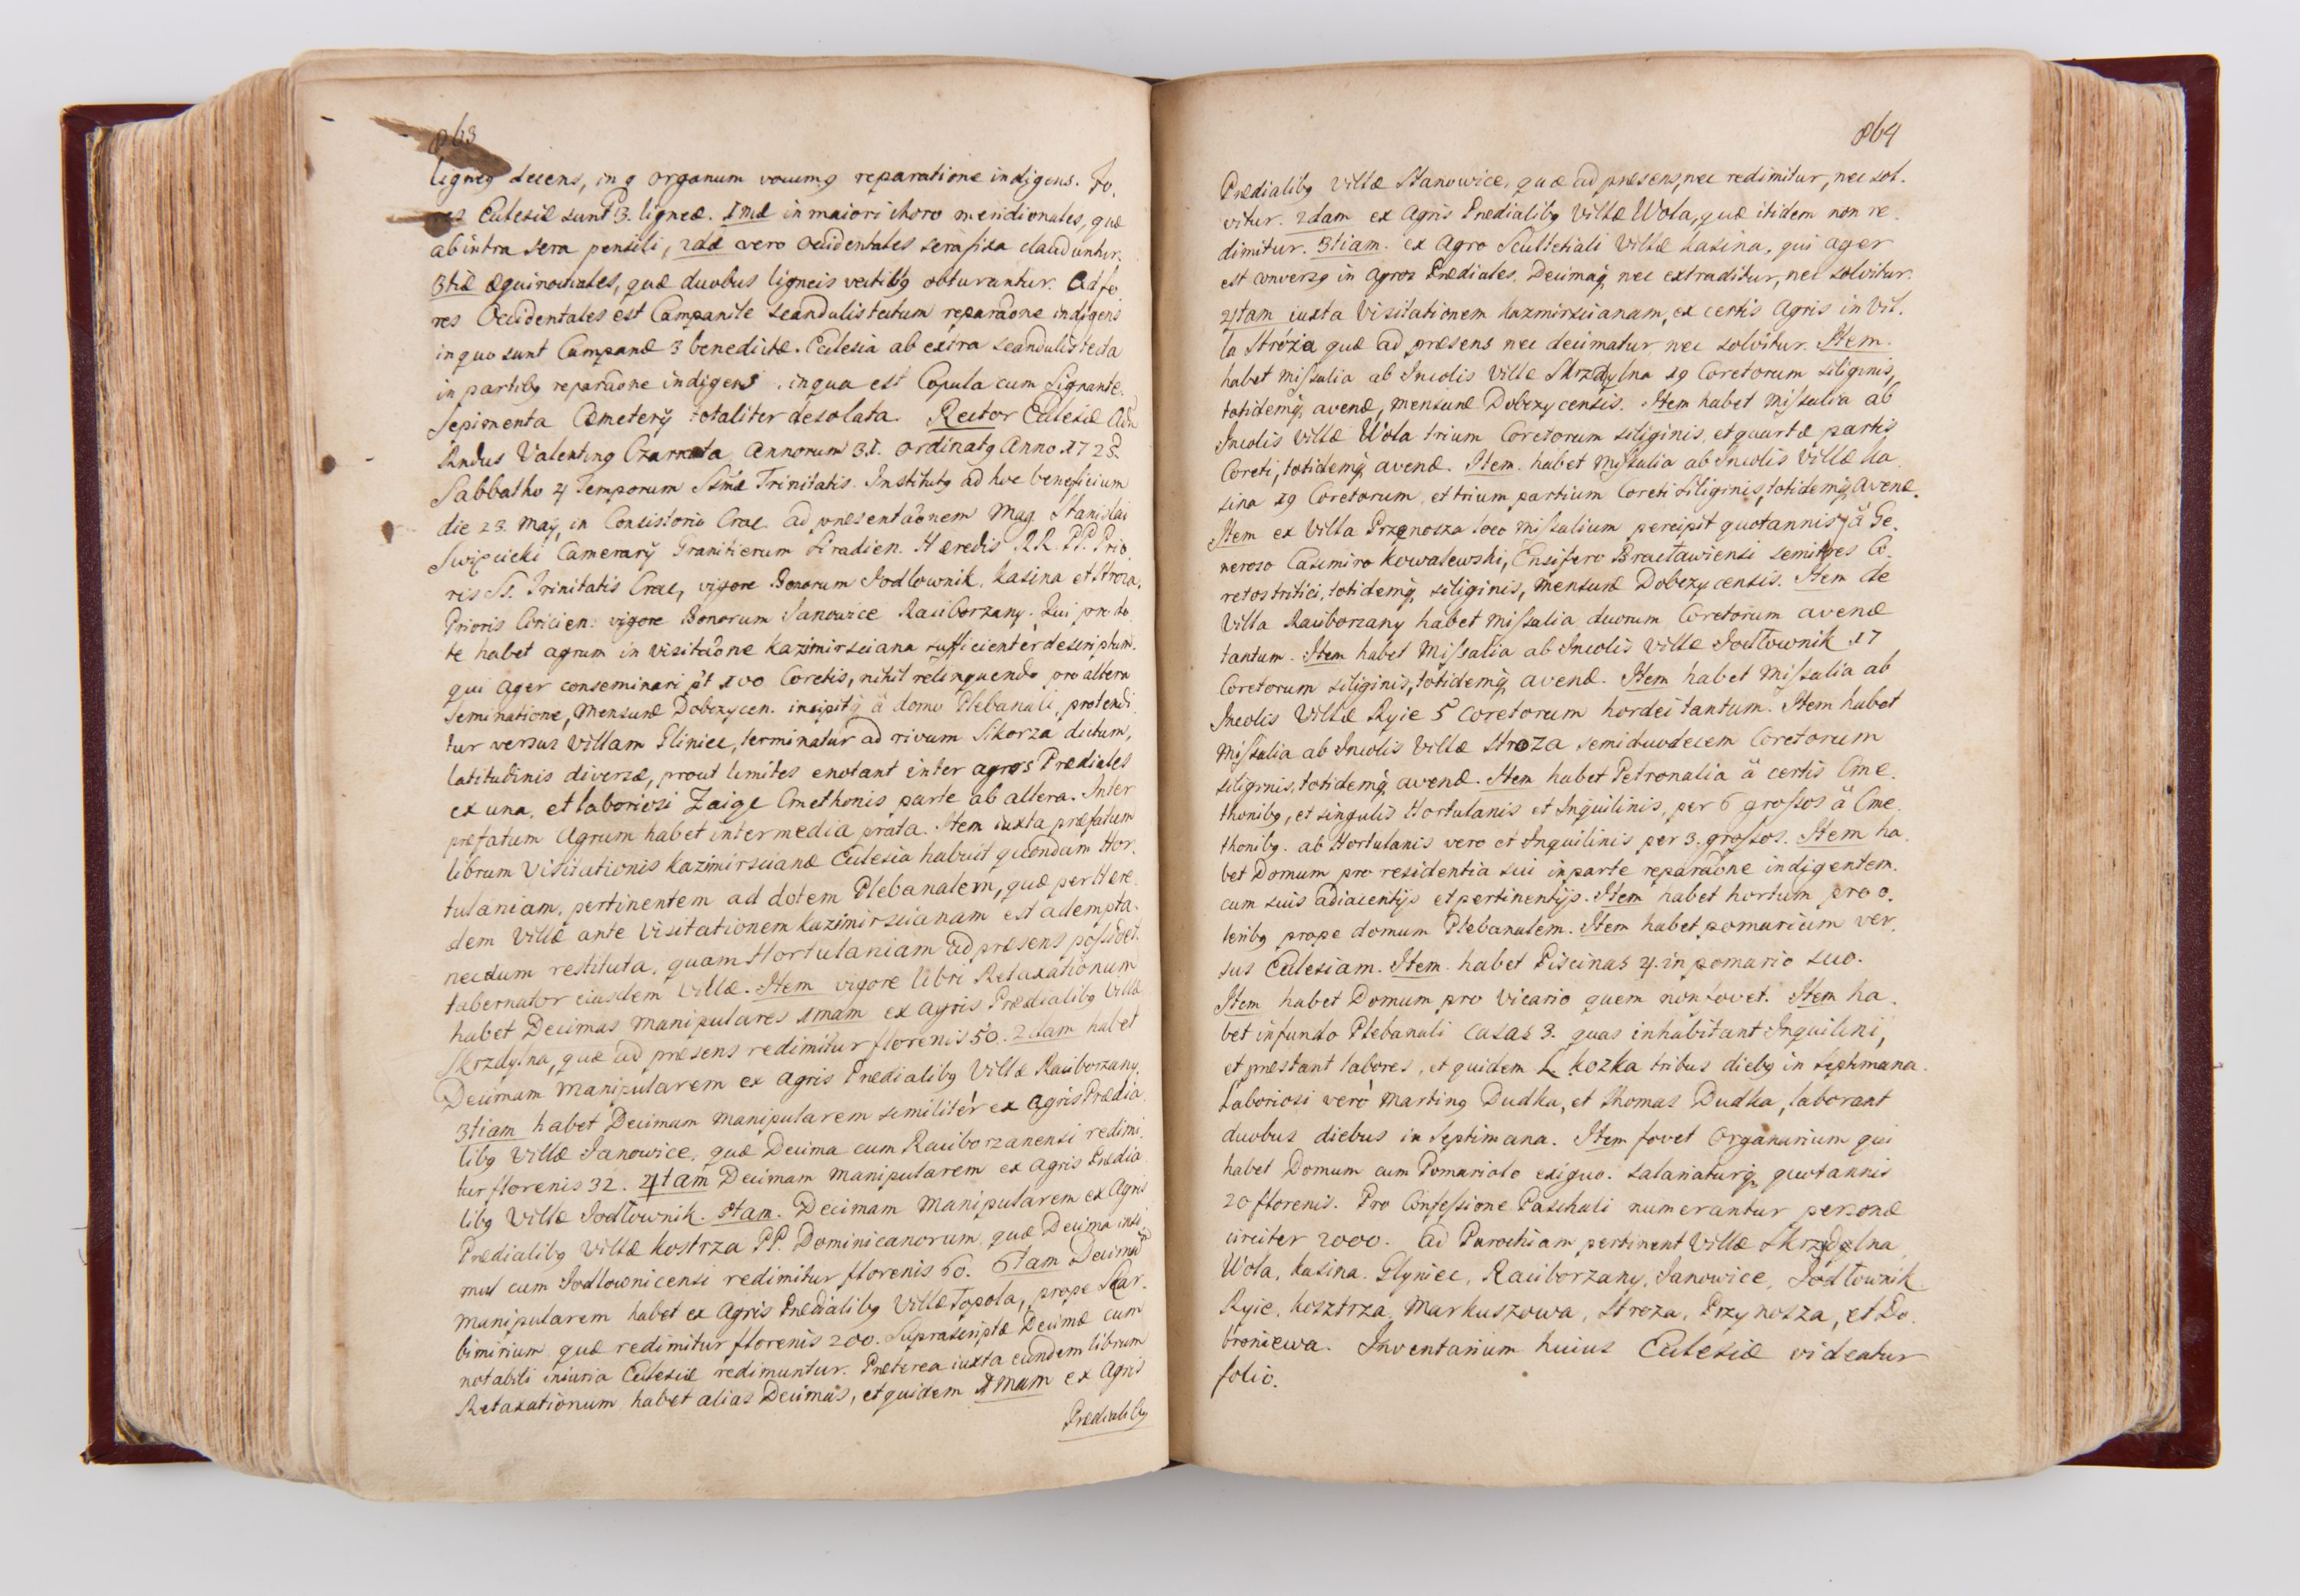 863
ligneg decens, in q organum vocumq reparatione indigens. Fo.
res Eclesiæ sunt 3. ligneæ. 1mæ in maiori choro meridionales, quæ
abintra sera pensili, 2dæ vero occidentales sera fixa clauduntur.
3tiæ æquinoctiales, quæ duobus ligneis vectibq obturantur. Ad fo.
res Occidentales est Campanile scandulis tectum reparaone indigens
in quo sunt Campanæ 3 benedictæ. Eclesia ab extra scandulis tecta
in partibq reparaone indigens, in qua est Copula cum Signante.
Sepimenta Cæmeterÿ totaliter desolata. Rector Eclesiæ Adm
Rndus Valentinq Czarnota Annorum 31. ordinatq Anno 1723
Sabbatho 4 Temporum Ssmæ Trinitatis. Institutq ad hoc beneficium
die 23. Maÿ, in Consistorio Crac. ad præsentaonem Mag. Stanislai
Swięcicki Camerarÿ Granitierum Siradien. Hæredis RR. PP. Prio.
ris SS. Trinitatis Crac, vigore Bonorum Jodlownik, Kasina et Stroza.
Prioris Ciricien: vigore Bonorum Janowice Raciborzany. Qui pro do.
te habet agrum in visitaone Kazimirsciana sufficienter descriptum.
qui Ager conseminari pt 100 Coretis, nihil relinquendo pro altera
Seminatione, Mensuræ Dobczycen. incipitq à domo Plebanali, protendi.
tur versus Villam Gliniec, terminatur ad rivum Skorza dictum,
latitudinis diversæ, prout limites enotant inter agros Prædiales
ex una, et laboriosi Zaige Cmethonis parte ab altera. Inter
præfatum Agrum habet intermedia prata. Item iuxta præfatum
librum Visitationis Kazimirscianæ Eclesia habuit quondam Hor.
tulaniam, pertinentem ad dotem Plebanalem, quæ per Hære.
dem Villæ ante Visitationem Kazimirscianam est adempta.
necdum restituta, quam Hortulaniam ad præsens possidet.
tabernator eiusdem Villæ. Item vigore libri Retaxationum
habet Decimas Manipulares 1mam ex Agris Prædialibq Villæ
Skrzdylna, quæ ad præsens redimitur florenis 50. 2dam habet
Decimam Manipularem ex Agris Prædialibq Villæ Raciborzany.
3tiam habet Decimam Manipularem similiter ex Agris Prædia.
libq Villæ Janowice, quæ Decima cum Raciborzanensi redimi.
tur florenis 32. 4tam Decimam Manipularem ex Agris Prædia
libq Villæ Jodłownik. 5tam. Decimam Manipularem ex Agris
Prædialibq Villæ Kostrza PP. Dominicanorum, quæ Decima insi.
mul cum Jodlownicensi redimitur florenis 60. 6tam Decimam
Manipularem habet ex Agris Prædialibq Villæ Topola, prope Skar.
bimirium quæ redimitur florenis 200. Suprascriptæ Decimæ cum
notabili iniuria Eclesiæ redimuntur. Præterea iuxta eundem librum
Retaxationum habet alias Decimas, et quidem 1mam ex Agris
Prædialibq
864
Prædialibq Villæ Stanowice, quæ ad præsens, nec redimitur, nec sol.
vitur. 2dam ex Agris Prædialibq Villæ Wola, quæ itidem non re.
dimitur. 3tiam. ex Agro Scultetiali Villæ Kasina, qui ager
est conversq in Agros Prædiales. Decimaq nec extraditur, nec solvitur.
4tam iuxta Visitationem Kazmirscianam, ex certis Agris in Vil.
la Stróża quæ ad præsens nec decimatur, nec solvitur. Item.
habet Missalia ab Incolis Villæ Skrzdylna 19 Coretorum siliginis,
totidemq avenæ, mensuræ Dobczycensis. Item habet Missalia ab
Incolis Villæ Wola trium Coretorum siliginis, et quartæ partis
Coreti, totidemq avenæ. Item. habet Missalia ab Incolis Villæ Ka.
sina 19 Coretorum, et trium partium Coreti siliginis, totidemq avenæ.
Item ex Villa Przenosza loco Missalium percipit quotannis à Ge.
neroso Casimiro Kowalewski, Ensifero Bracławiensi semitres Co.
retos tritici, totidemq siliginis, mensuræ Dobczycensis. Item de
Villa Raciborzany habet missalia duorum Coretorum avenæ
tantum. Item habet Missalia ab Incolis Villæ Jodłownik 17
Coretorum siliginis, totidemq avenæ. Item habet Missalia ab
Incolis Villæ Ryie 5 Coretorum hordei tantum. Item habet
Missalia ab Incolis Villæ Stroza semiduodecem Coretorum
siliginis, totidemq avenæ. Item habet Petronalia à certis Cme.
thonibq, et singulis Hortulanis et Inquilinis, per 6 grossos à Cme.
thonibq. ab Hortulanis vero et Inquilinis per 3. grossos. Item ha.
bet Domum pro residentia sui in parte reparaone indigentem.
cum suis adiacentijs et pertinentijs. Item habet hortum pro o.
leribq prope domum Plebanalem. Item habet pomarium ver.
sus Eclesiam. Item habet Piscinas 4. in pomario suo.
Item habet Domum pro Vicario quem non fovet. Item ha.
bet in fundo Plebanali casas 3. quas inhabitant Inquilini,
et præstant labores, et quidem L. Kozka tribus diebq in septimana.
Laboriosi verò Martinq Dudka, et Thomas Dudka, laborant
duobus diebus in Septimana. Item fovet Organarium qui
habet Domum cum Pomariolo exiguo. Salariaturq quotannis
20 florenis. Pro Confessione Paschali numerantur personæ
circiter 2000. Ad Parochiam pertinent Villæ Skrzydylna,
Wola, Kasina. Glyniec, Raciborzany, Janowice, Jodłownik.
Ryie, Kosztrza, Markuszowa, Stroza, Przynosza, et Do.
broniewa. Inventarium huius Eclesiæ videatur
folio.